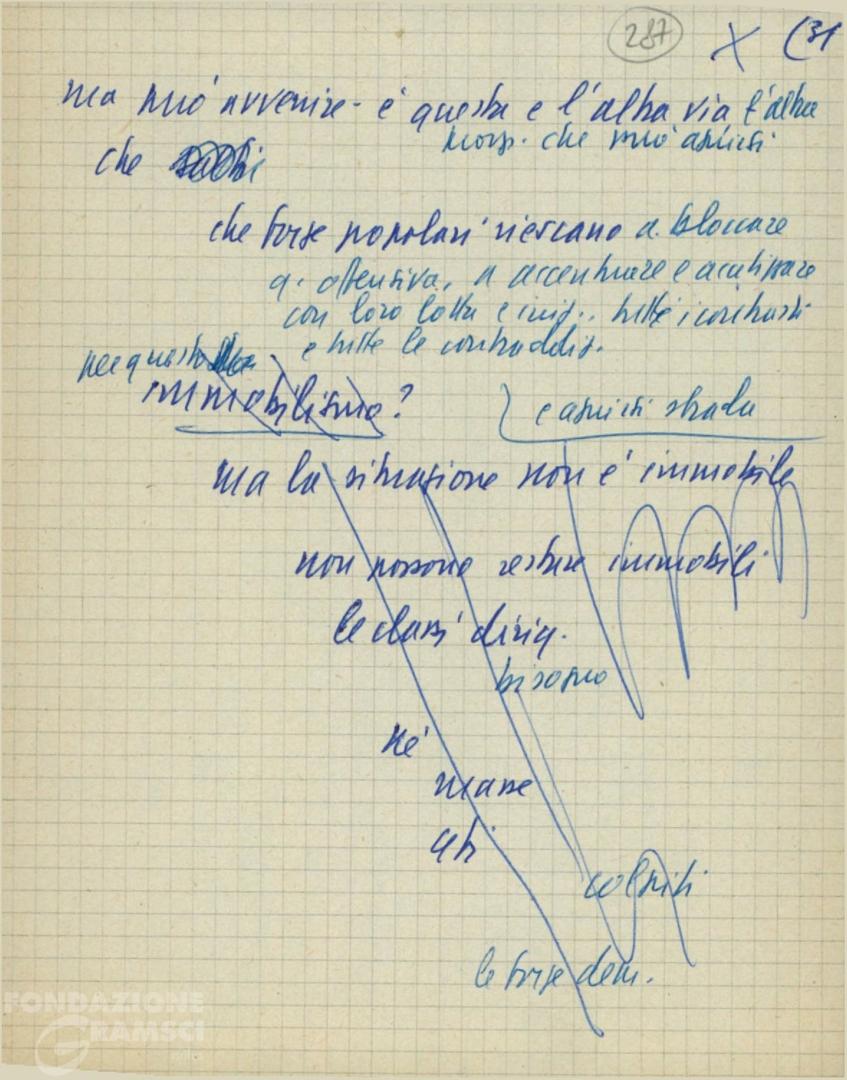 287 X (31
ma può avvenire - è questa e l'altra via l'altra
prosp. che può aprirsi
che
che forze popolari riescano a bloccare
q. offensiva, a accentuare e acutizzare
con loro lotta e iniz., tutti i contrasti
e tutte le contraddiz.
per questo
immobilismo?
e aprirsi strada
ma la situazione non è immobile
non possono restare immobili
le classi dirig.
bisogno
né
masse
ceti
colpiti
le forze dem.
FONDAZIONE
GRAMSCI